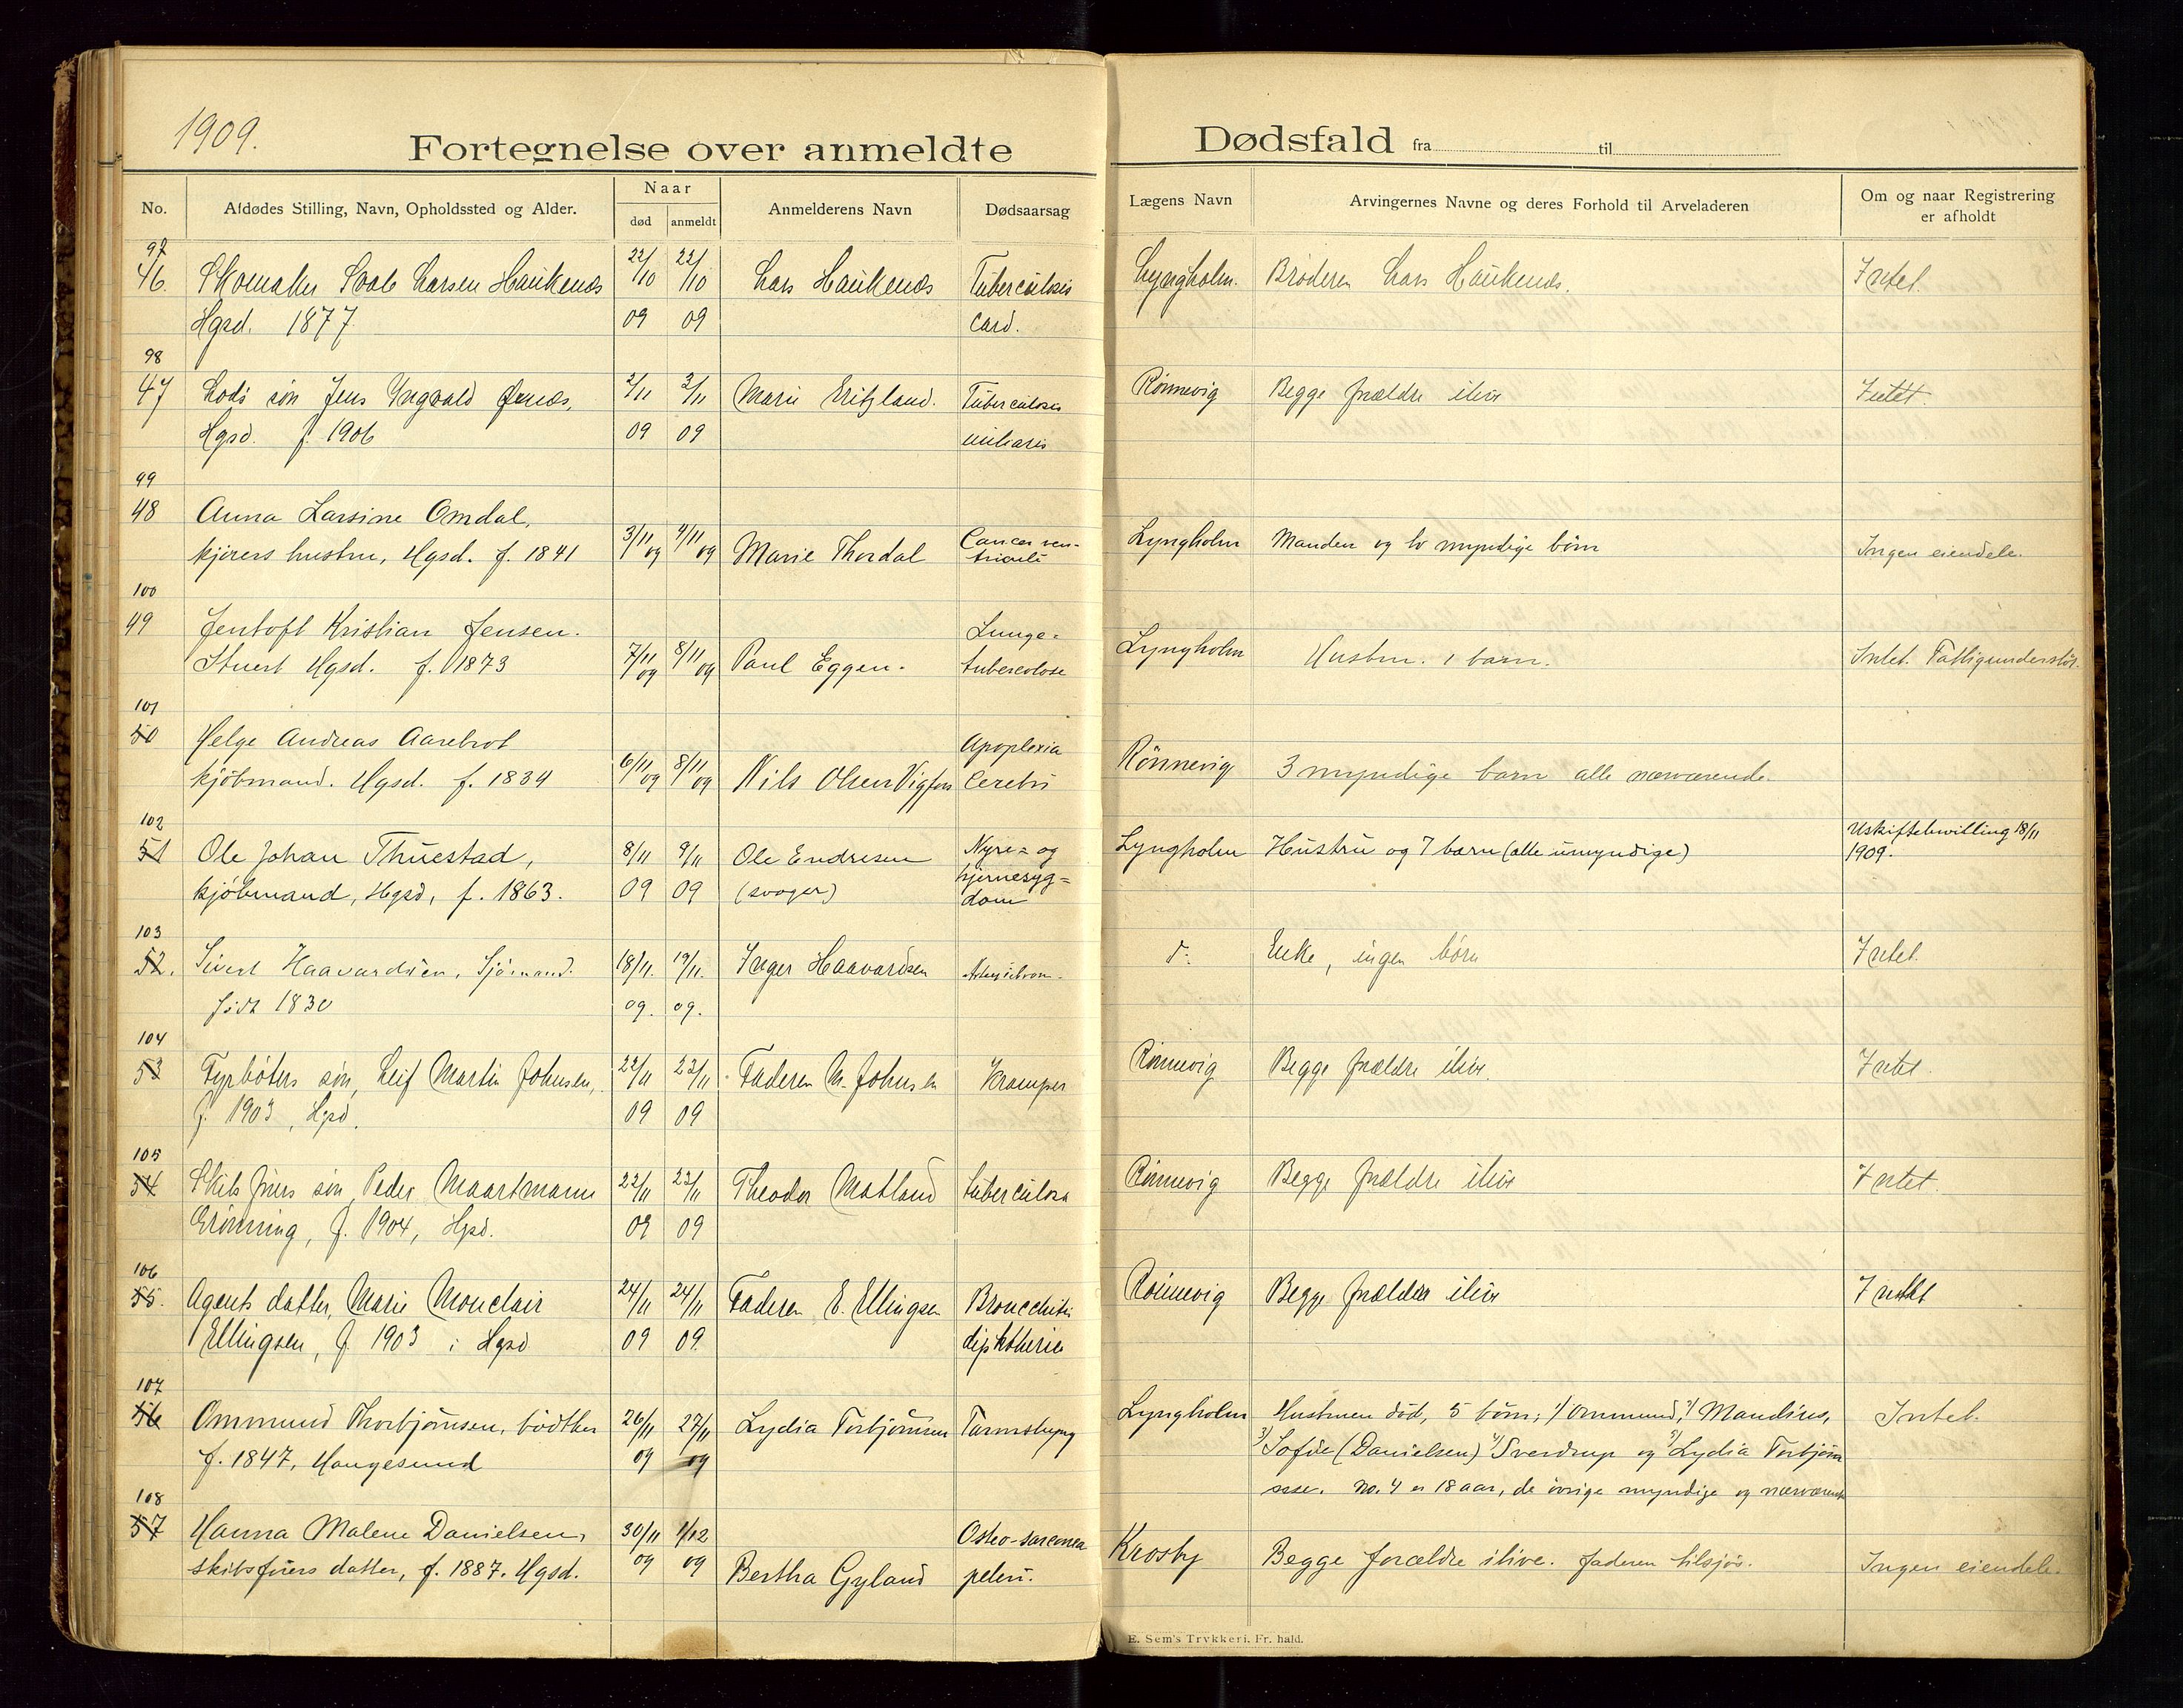 1909.
Fortegnelse over anmeldte Dødsfald fra til
No.
Afdødes Stilling, Navn, Opholdssted og Alder.
Naar
død
anmeldt
Anmelderens Navn
Dødsaarsag
Lægens Navn
Arvingernes Navne og deres Forhold til Arveladeren
Om og naar Registrering
er afholdt
97
46. Skomaker Larsen Haukenæs 22/10 22/10 Lars Haukenæs Tuberculosis Lyngholm. Broderen Lars Haukenæs. Intet.
Hgsd. 1877 09 09 card.
98
47 Lods søn Jens Ingvald Ørnæs, 2/11 3/11 Marie Tuberculosis Rönnevig Begge forældre ilive Intet.
Hgsd. f. 1906 09 09 miliaris
99
48 Anna Larsine Omdal,
kjörers hustru, Hgsd. f. 1841 3/11 09 4/11 09 Marie Thordal Cancer ven-
triculi Lyngholm Manden og to myndige børn Ingen eiendele.
100
49 Jentoft Kristian Jensen. Lunge-
Stuert Hgsd. f. 1873 7/11 09 8/11 09 Paul Eggen. tuberculose Lyngholm Hustru. 1 barn. Intet. Fattigunderstöt.
101
50 Helge Andreas Aarebrot Apoplexia
kjöbmand. Hgsd. f. 1834 6/11 09 8/11 09 Nils Olsen Vigfos Cerebri Rönnevig 3 myndige barn alle nærværende.
102
51 Ole Johan Thuestad, 8/11 9/11 Ole Endresen Nyre- og Lyngholm Hustru og 7 barn (alle umyndige) Uskiftebevilling 18/11
1909.
kjöbmand, Hgsd, f. 1863. 09 09 (svoger) hjernesyg-
dom
103
52. Sivert Haavardsen, Sjömand. 18/11. 19/11. Inger Haavardsen do: Enke, ingen börn Intet.
födt 1830 09. 09.
104
53 Fyrböters sön, Leif Martin Johnsen, 22/11 23/11 Faderen M. Johnsen Kramper Rönnevig Begge forældre ilive. Intet.
f. 1903, Hgsd. 09 09
105
54 Skibsförers sön, Peder Maartmann 22/11 23/11 Theodor Matland tuberculose Rönnevig Begge forældre ilive Intet.
Grönning, f. 1904, Hgsd. 09 09
106
55. Agents datter, Marie Monclair 24/11 24/11 Faderen E. Ellingsen Rönnevig Begge forældre ilive Intet
Ellingsen, f. 1903 i Hgsd 09 09.
107
56 Ommund Thorbjörnsen, bödker 26/11 27/11 Lydia Torbjörnsen Tarmslyng Lyngholm Hustruen död, 5 börn; 1) Ommund, 2) Mandius, Intet.
f. 1847, Haugesund 09 09 3) Sofie (Danielsen) 4) Sverdrup og 5) Lydia Torbjörn
sen. no. 4 er 18 aar, de övrige myndige og nærværende
108
57 Hanna Malene Danielsen, 30/11 1/12 Osteo-sarcoma
skibsförers datter, f. 1887. Hgsd. 09 09 Bertha Gyland pelvi. Krosby Begge forældre ilive. faderen tilsjös. Ingen eiendele.
E. Sem's Trykkeri, Fr. hald.